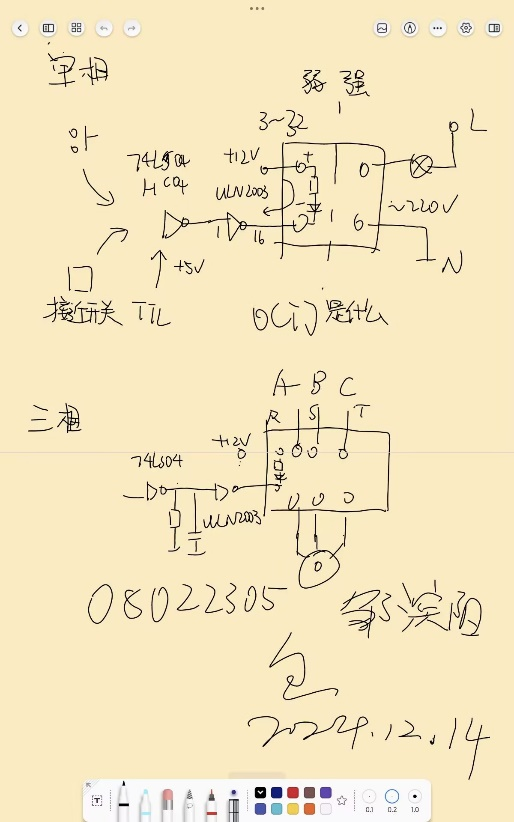 单相
弱 强
3~32
L
74LS04
HC04
+12V
+
ULN2003
-
~220V
1
16
+5V
N
接近开关 TTL
O(i)是什么
三相
A B C
R S T
+12V
74LS04
ULN2003
08022305
2024.12.14
T
0.1 0.2 1.0